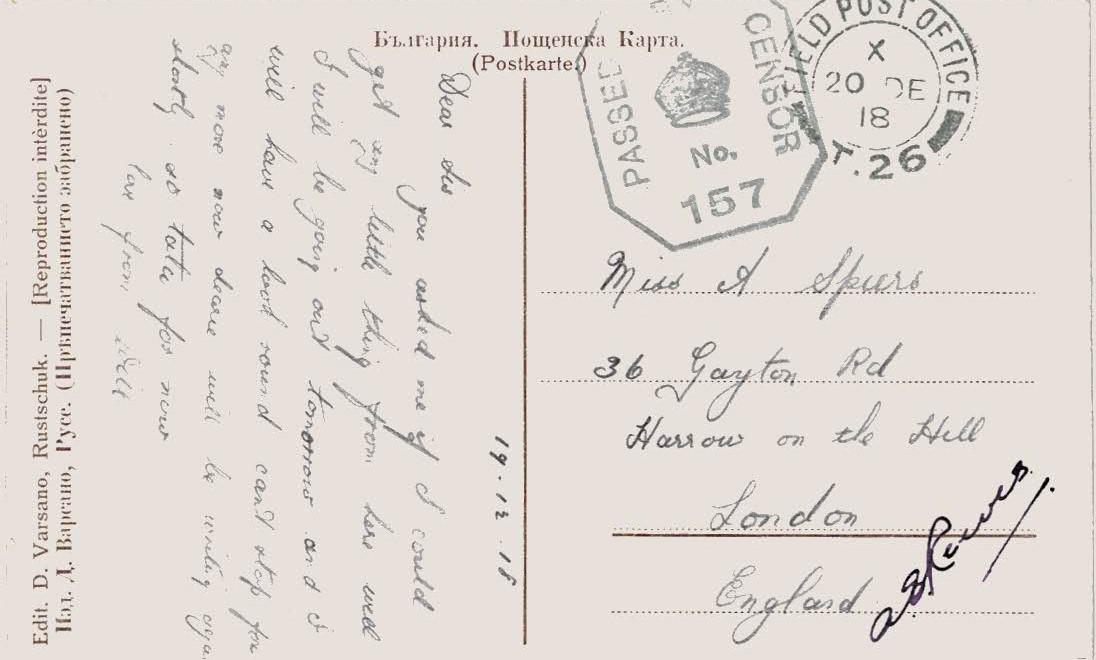 България. Пощенска Карта.
(Postkarte.)
PASSED
CENSOR
No.
157
FIELD POST OFFICE
X
20 DE
18
T.26
19.12.18
Dear Sis
you asked me if I could
get any little thing from here well
I will be going out tomorrow and I
will have a good round cant stop for
any more now dearie will be writing again
shortly so tata for now
from Will
Miss A Spiers
36 Gayton Rd
Harrow on the Hill
London
England
Edit. D. Varsano, Rustschuk. — [Reproduction intèrdite]
Изд. Д. Варсано, Русе. (Прѣпечатванието забранено)